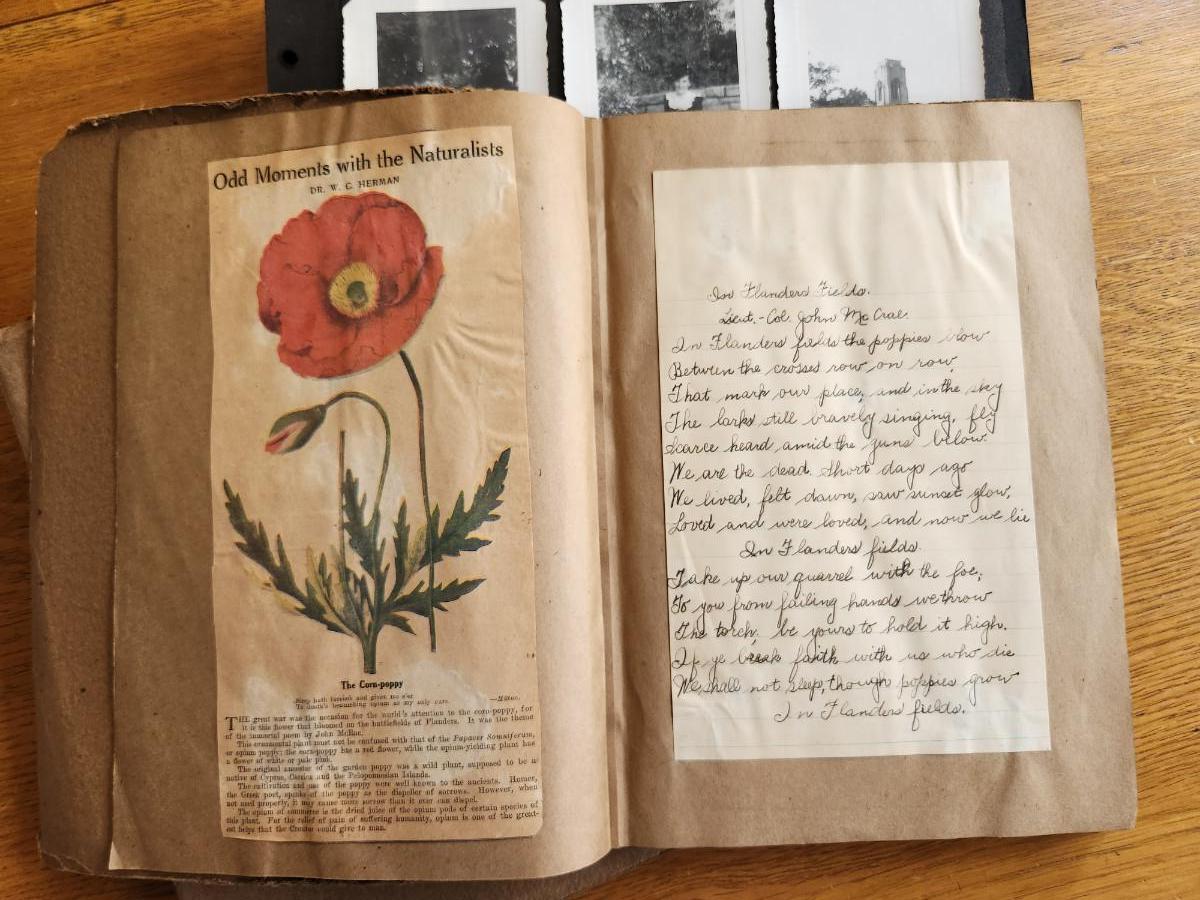 Odd Moments with the Naturalists
DR. W. C. HERMAN
The Corn-poppy
—Milton.
THE great war was the occasion for the world's attention to the corn-poppy, for
it is this flower that bloomed on the battlefields of Flanders. It was the theme
of the immortal poem by John McRae.
This ornamental plant must not be confused with that of the Papaver Somniferum,
or opium poppy; the corn-poppy has a red flower, while the opium-yielding plant has
a flower of white or pale pink.
The original ancestor of the garden poppy was a wild plant, supposed to be a
native of Cyprus, Corsica and the Peloponnesian Islands.
The cultivation and use of the poppy were well known to the ancients. Homer,
the Greek poet, speaks of the poppy as the dispeller of sorrows. However, when
not used properly, it may cause more sorrow than it ever can dispel.
The opium of commerce is the dried juice of the opium pods of certain species of
this plant. For the relief of pain of suffering humanity, opium is one of the great-
est helps that the Creator could give to man.
In Flanders Fields.
Lieut.-Col. John Mc Crae.
In Flanders fields the poppies blow
Between the crosses row on row,
That mark our place, and in the sky
The larks still bravely singing, fly
Scarce heard amid the guns below.
We are the dead. Short days ago
We lived, felt dawn, saw sunset glow,
Loved and were loved, and now we lie
In Flanders fields.
Take up our quarrel with the foe;
To you from failing hands we throw
The torch, be yours to hold it high.
If ye break faith with us who die
We shall not sleep, though poppies grow
In Flanders fields.